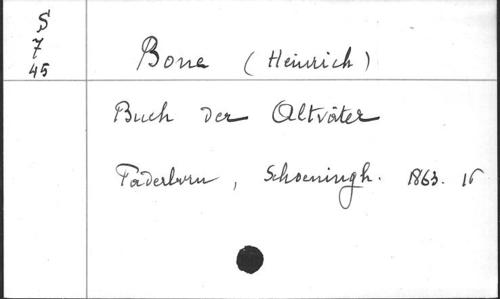 S
7
45
Bone (Heinrich)
Buch der Altväter
Paderborn, Schoeningh. 1863. 16